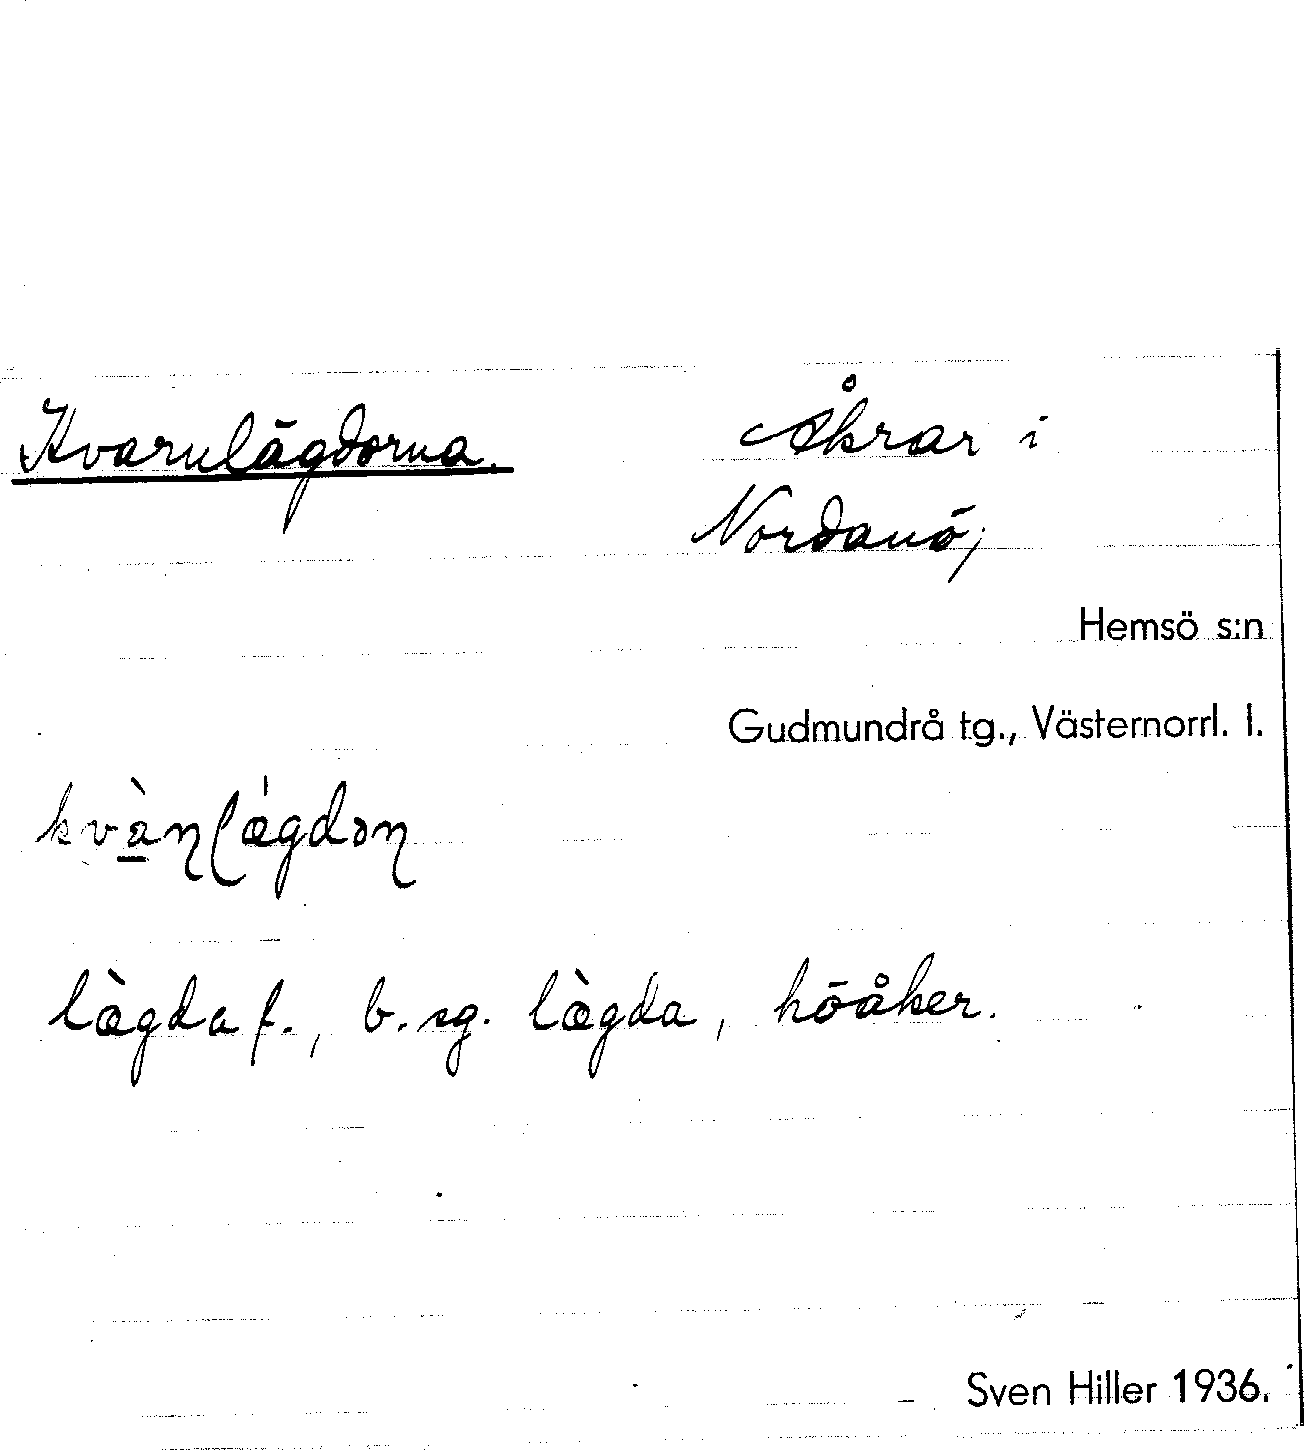 Kvarnlägdorna. Åkrar i
Nordanö;
Hemsö s:n
Gudmundrå tg., Västernorrl. l.
kvàɳɭǽgdɔɳ
læ̀gda f., b. sg. læ̀gda, höåker.
Sven Hiller 1936.